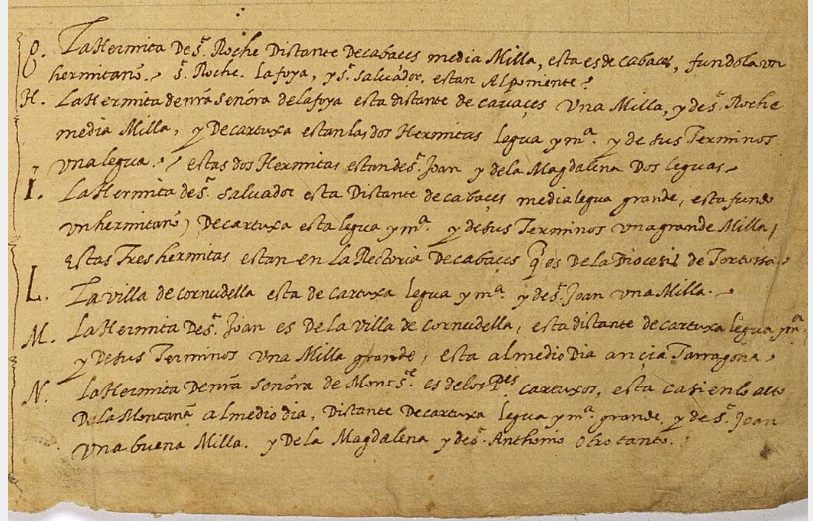 G. La Hermita De S.t Roche Distante De cabaces media Milla, esta es de cabaces, fundola un
hermitano. S.t Roche. La foya, y S.t Salvador, estan Al poniente.
H. La Hermita de nr̃a Senõra de la foya esta distante de cavaçes Una Milla, y de S.t Roche
media Milla, y De cartuxa estan las dos Hermitas legua y m.a y de sus Terminos
Una legua. estas dos Hermitas estan de S.t Joan y de la Magdalena Dos leguas.
I. La Hermita de S.t Salvador esta Distante de cabaçes media legua grande, esta fundo
Un hermitano) De cartuxa esta legua y m.a y de sus Terminos Una grande Milla,
Estas Tres hermitas estan en La Rectoria De cabaçes q̃ es De La Diocesis de Tortossa.
L. La villa de cornudella esta de cartuxa legua y m.a y de S.t Joan Una Milla.
M. La Hermita De S.t Joan es De la Villa de Cornudella, esta distante de cartuxa legua y m.a
y De sus Terminos Una Milla grande, esta al medio Dia ancia Tarragona.
N. La Hermita De nr̃a Senõra de Mont S.t es de los P.es cartuxos, esta casi en lo alto
De La Montanã al medio dia, Distante De cartuxa legua y m.a grande, y de S.t Joan
Una buena Milla. y De la Magdalena y de S.t Anthonio otro tanto.